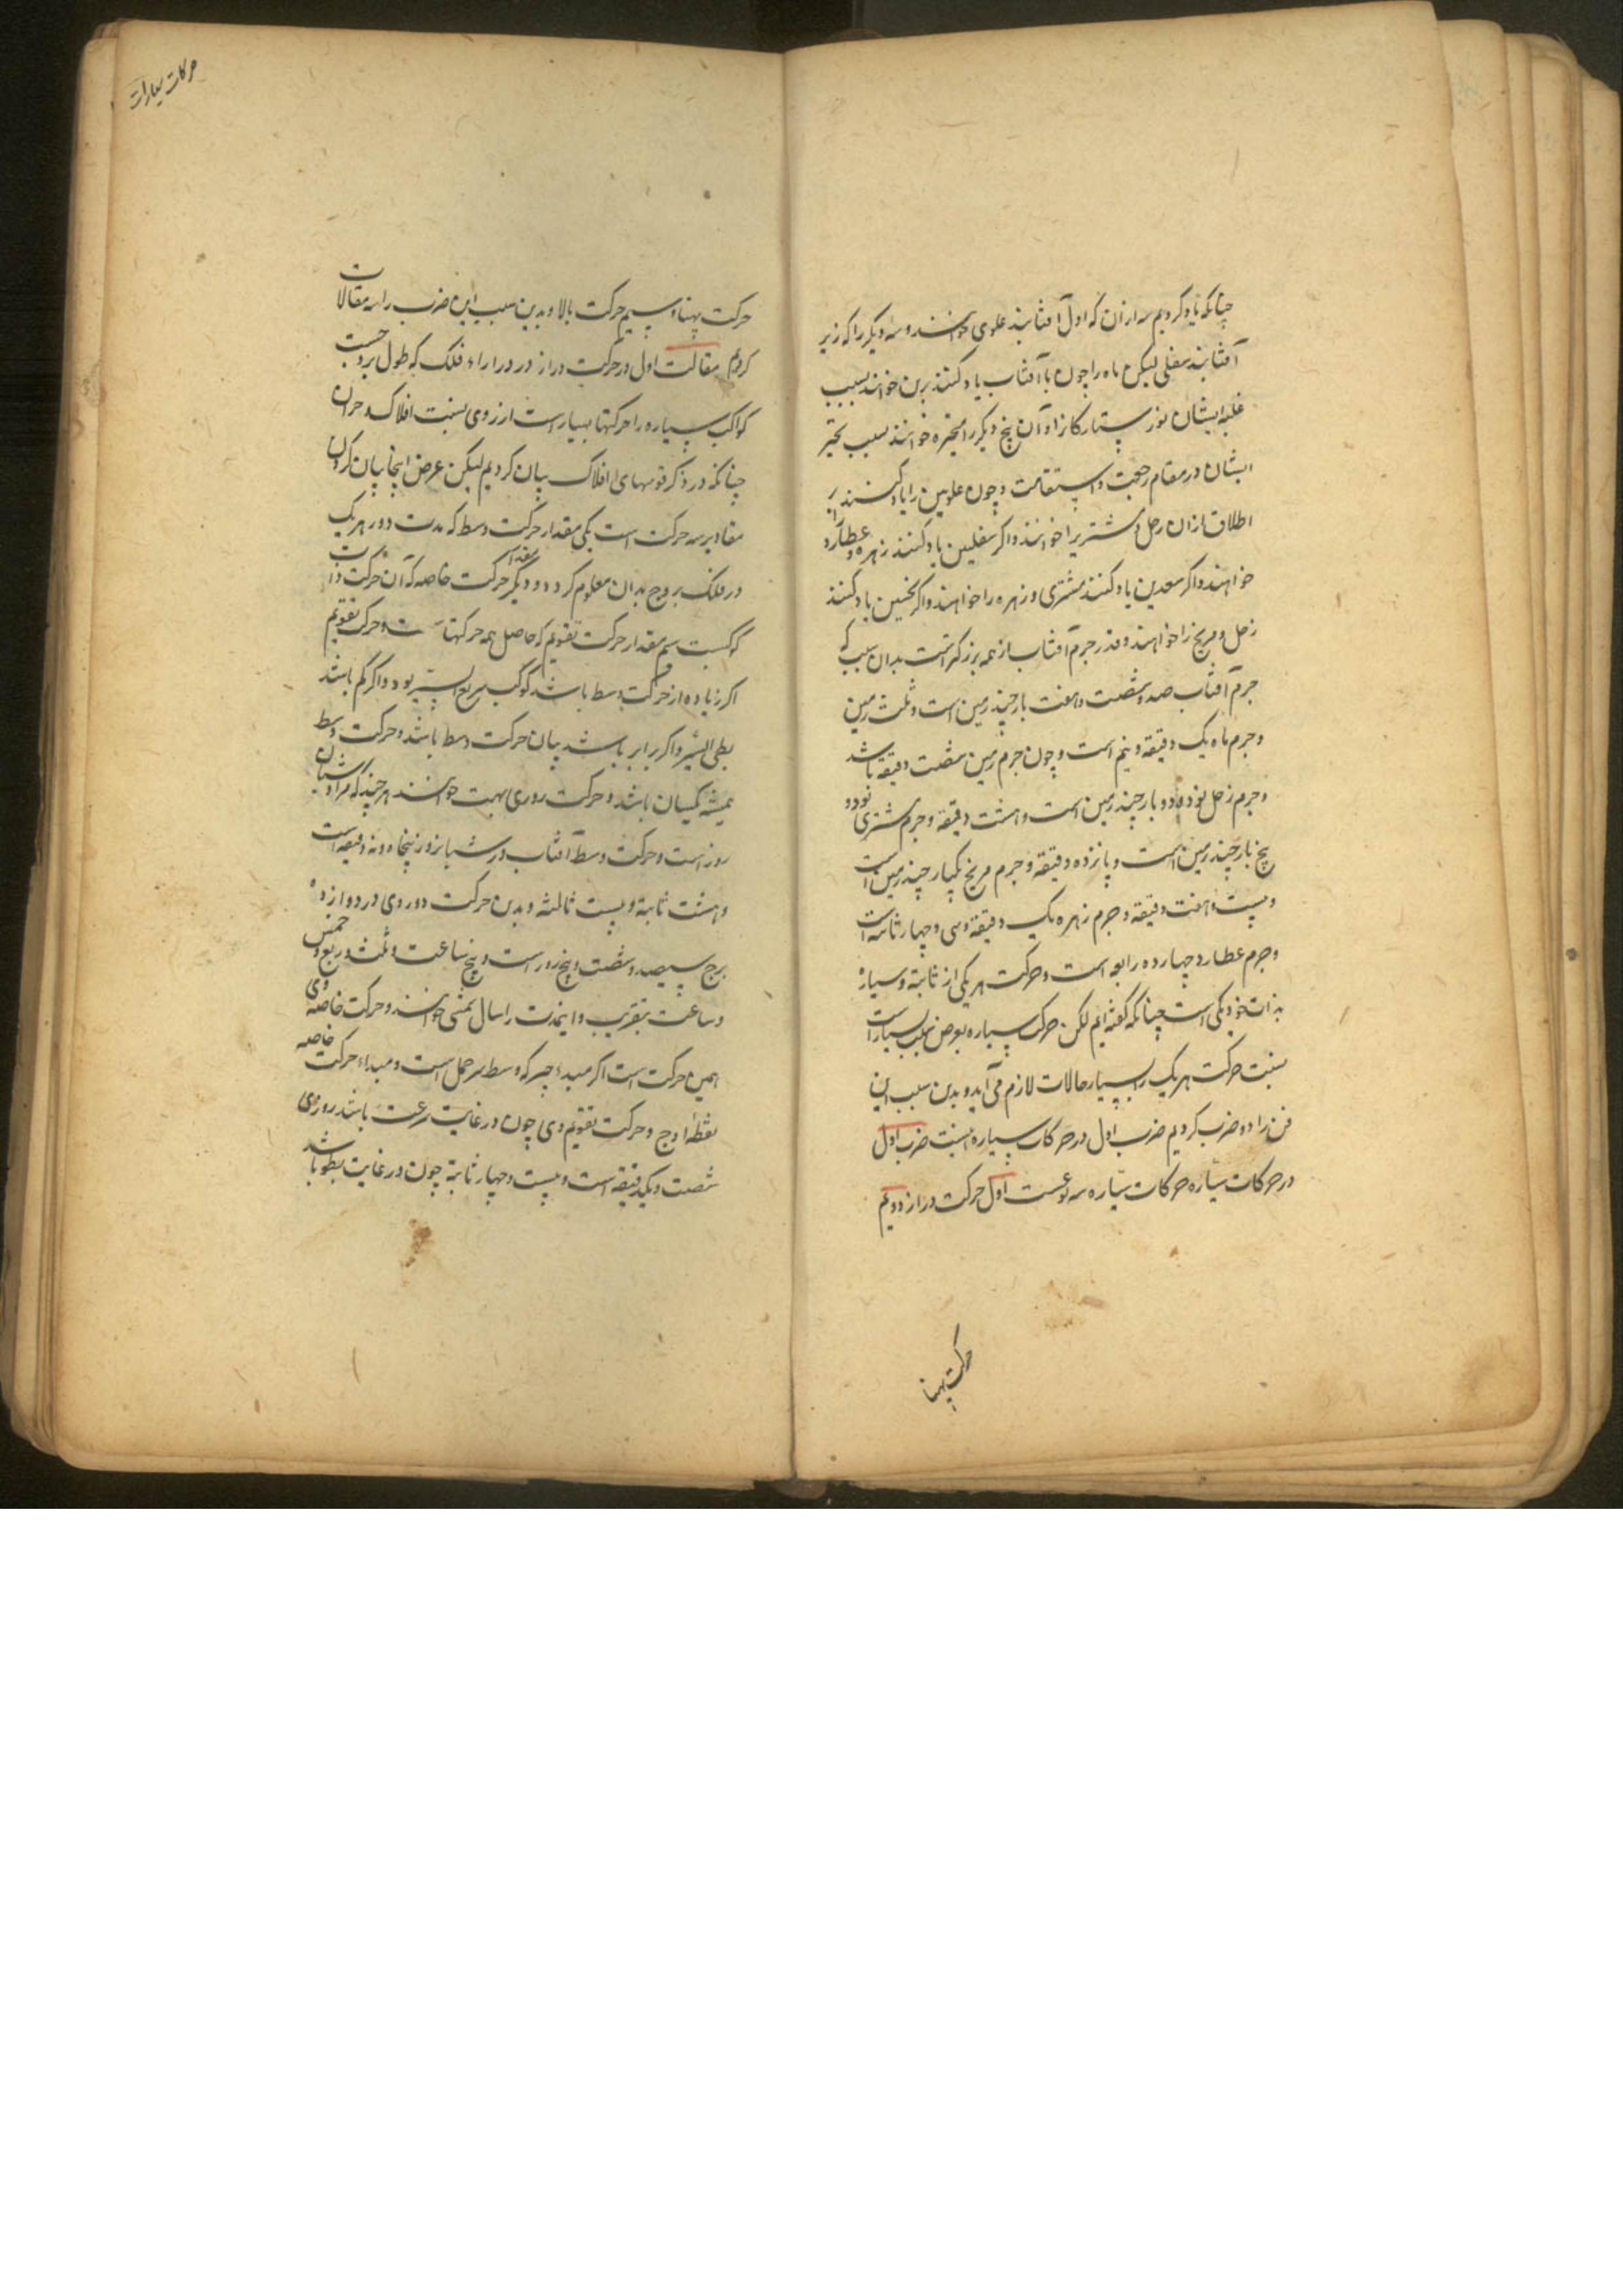 چنانکه یاد کردیم سه ازان که اول آفتابند علوی خوانند و سه دیگر را که زیر
آفتابند سفلی لیکن ماه را چون با آفتاب یاد کنند نیرین خوانند بسبب
غلبه ایشان نور ستارکانرا و آن پنج دیکر را متحیره خوانند بسبب تحیر
ایشان در مقام رجعت و استقامت و چون علویین را یاد کنند بر
اطلاق ازان زحل و مشتریرا خوانند و اکر سفلیین یاد کنند زهره و عطارد
خواهند و اکر سعدین یاد کنند مشتری و زهره را خواهند و اکر نحسین یاد کنند
زحل و مریخ را خواهند و قدر جرم آفتاب از همه بزرکتر است بدان سبب که
جرم آفتاب صد و شصت و هفت بار چند زمین است و ثلث زمین
و جرم ماه یک دقیقه و نیم است و چون جرم زمین شصت دقیقه باشد
و جرم زحل نود و دو بار چند زمین است و هشت دقیقه و جرم مشتری نود و
پنج بار چند زمین است و پانزده دقیقه و جرم مریخ یکبار چند زمین است
و بیست و هفت دقیقه و جرم زهره یک دقیقه و سی و چهار ثانیه است
و جرم عطارد چهارده رابعه است و حرکت هر یکی از ثابته و سیاره
بذات خود یکی است چنانکه گفته ایم لکن حرکت سیاره بعرض بسیار است
بنسبت حرکت هر یک را بسیار حالات لازم می آید و بدین سبب این
فن را دو ضرب کردیم ضرب اول در حرکات سیاره بنسبت ضرب اول
در حرکات سیاره حرکات سیاره سه نوعست اول حرکت دراز دویم
حرکت پهنا
حرکات سیارات
حرکت پهنا و سیم حرکت بالا و بدین سبب این ضرب را سه مقالات
کردیم مقالت اول در حرکت دراز در درازاء فلک که طول بروجست
کواکب سیاره را حرکتها بسیار است از روی نسبت افلاک
چنانکه در ذکر قوسهای افلاک بیان کردیم لیکن عرض اینجا بیان کردن
مقادیر سه حرکت است یکی مقدار حرکت وسط که مدت دور هر یک
در فلک بروج بدان معلوم کردد و دیگر مقدار حرکت خاصه که آن حرکت ذات
کوکبست سیم مقدار حرکت تقویم که حاصل همه حرکتهاست و حرکت تقویم
اکر زیاده از حرکت وسط باشد کوکب سریع السیر بود و اکر کم باشد
بطی السیر و اکر برابر باشد بیان حرکت وسط باشد و حرکت وسط
همیشه یکسان باشد و حرکت روزی بهت خوانند هر چند که مراد شبان
روز است و حرکت وسط آفتاب در شبانروز پنجاه و نه دقیقه است
و هشت ثانیة و بیست ثالثه و بدین حرکت دور وی در دوازده
برج سیصد و شصت و پنج روز است و پنج ساعت و ثلث و ربع و خمس
و ساعت بتقریب و اینمدت را سال شمسی خوانند و حرکت خاصه وی
همین حرکت است اکر مبداء وسط سر حمل است و مبداء حرکت خاصه
نقطه اوج و حرکت تقویم وی چون در غایت سرعت باشد روزی
شصت و یکدقیقه است و بیست و چهار ثانیة چون در غایت بطو باشد